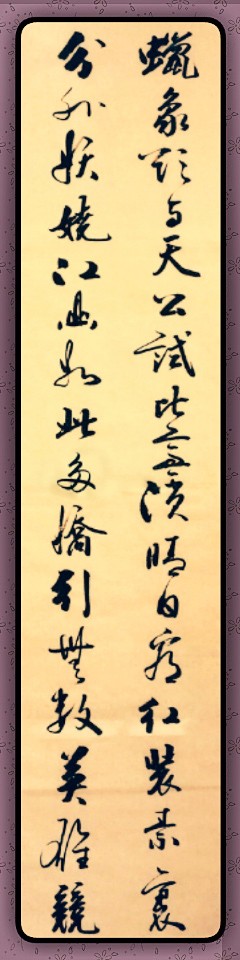 蠟象欲与天公試比高須晴日看紅裝素裹
分外妖嬈江山如此多嬌引無數英雄競